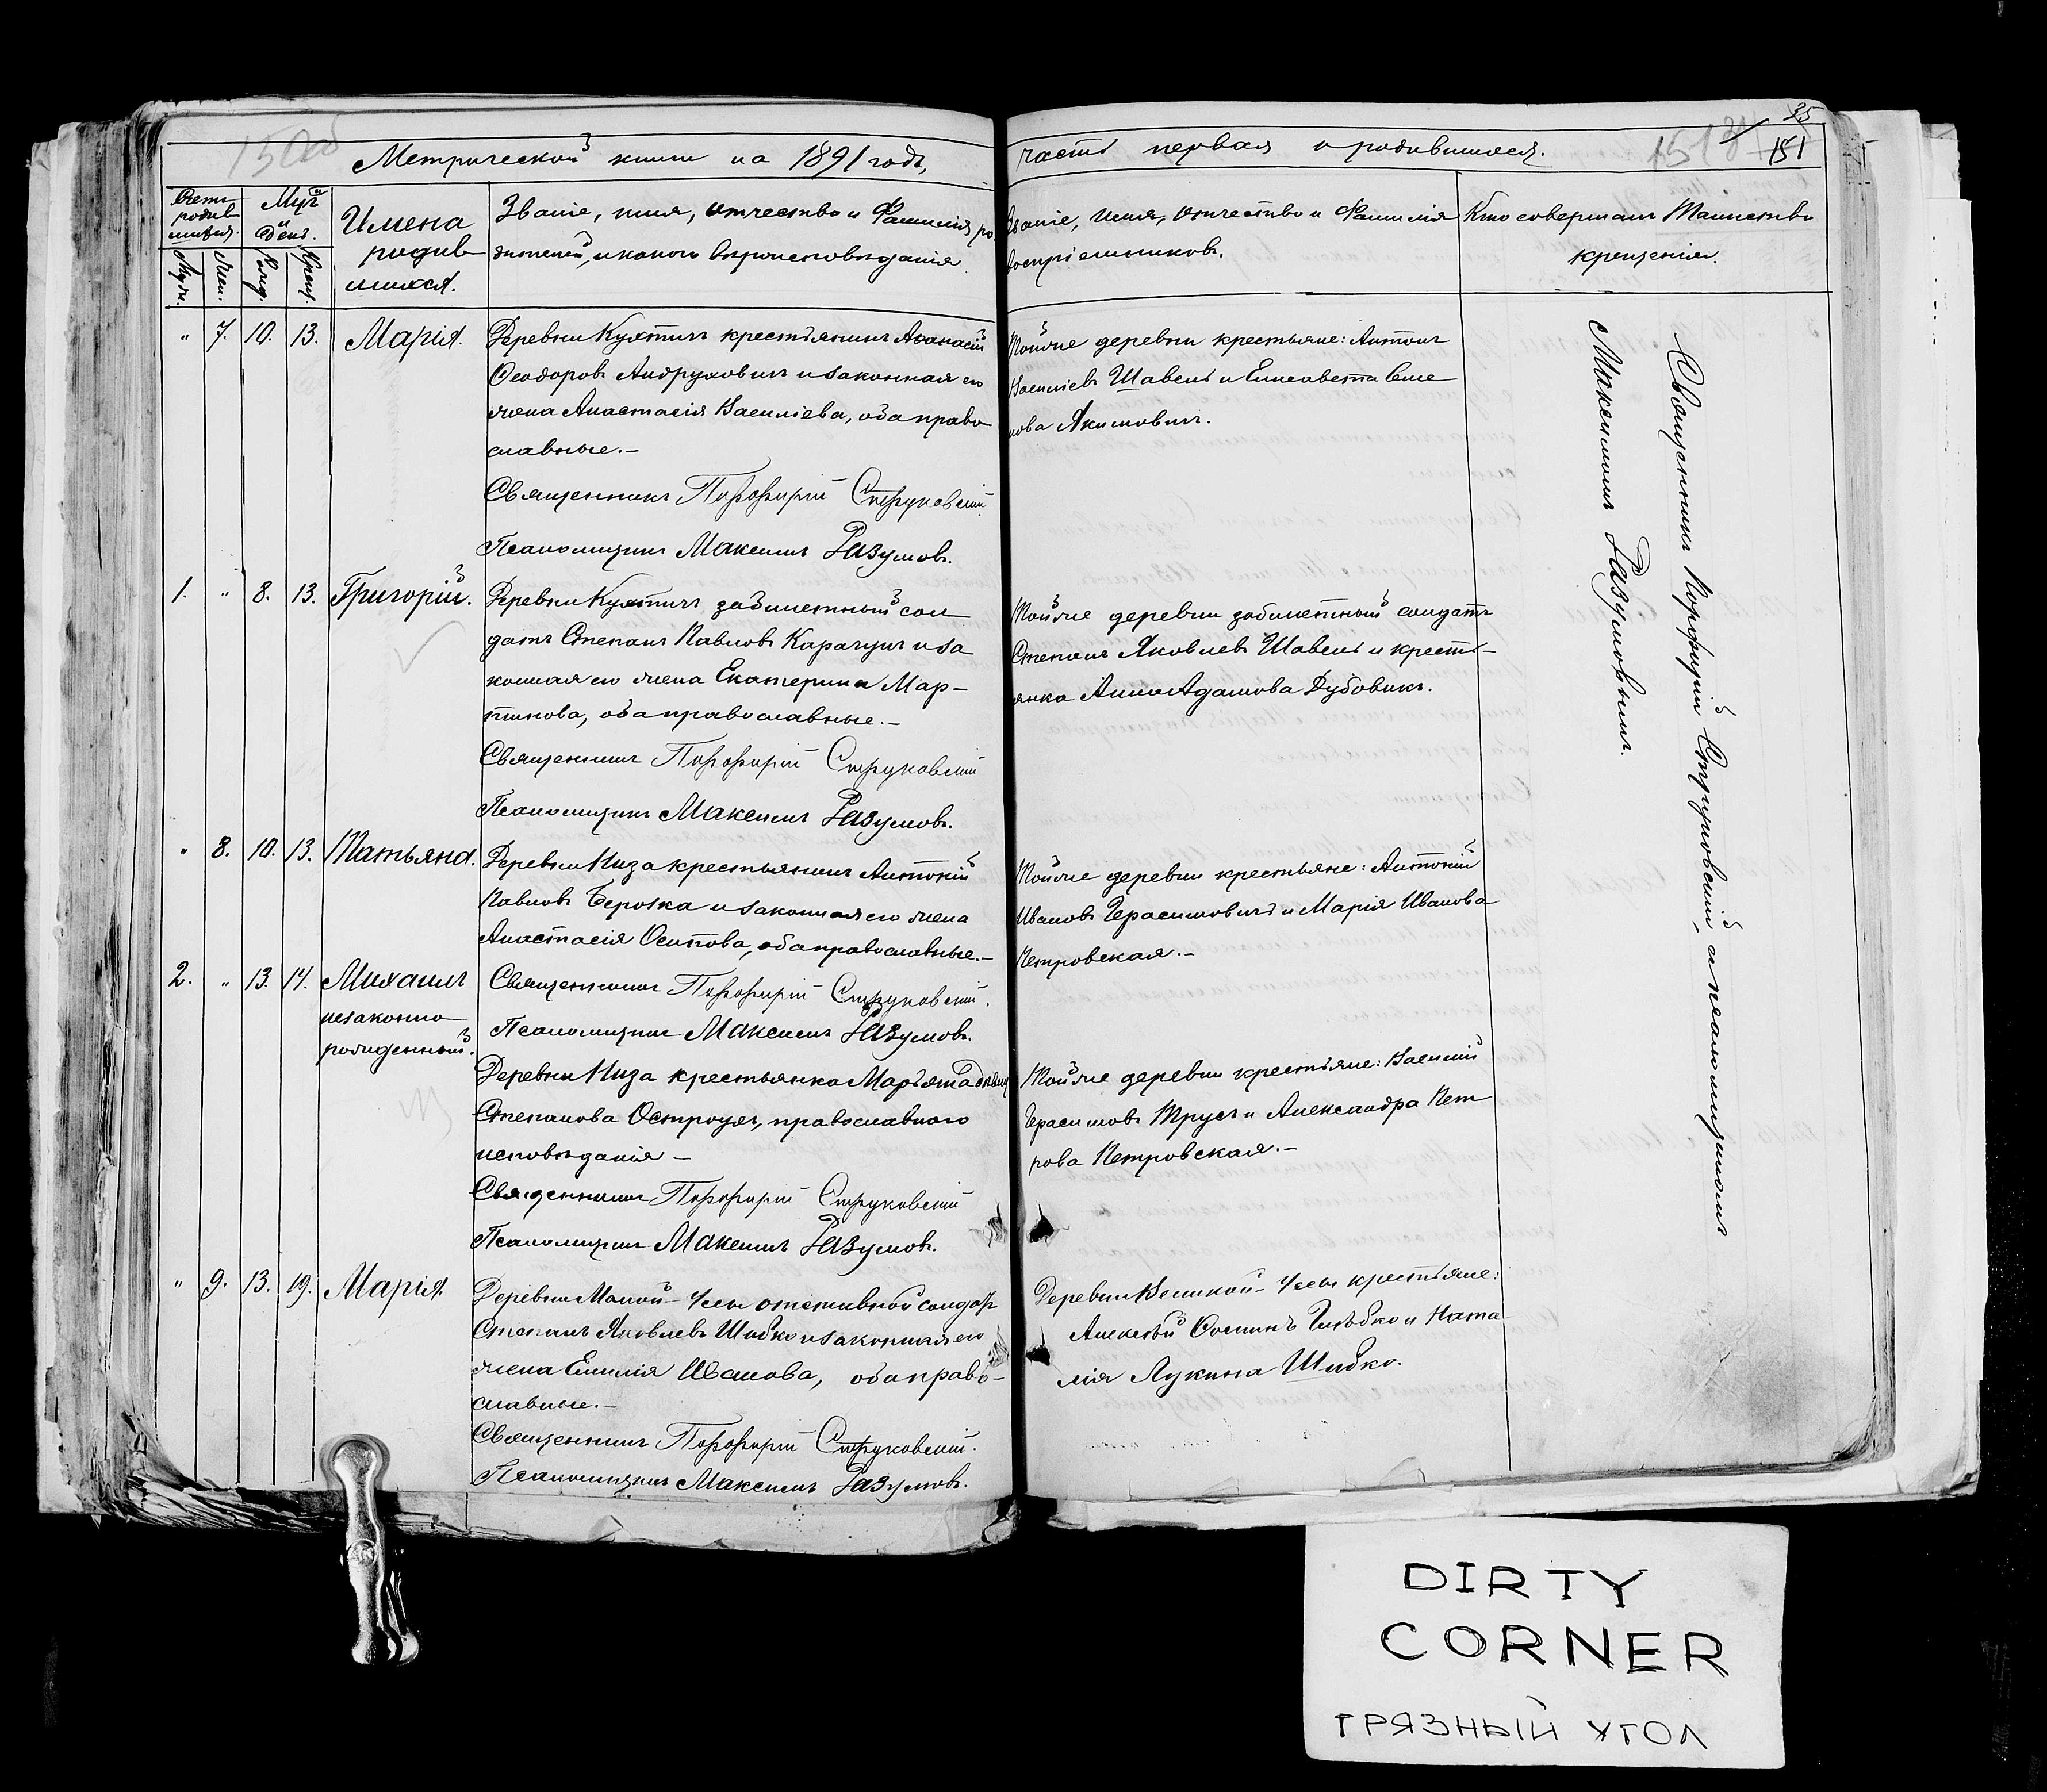 150об
Метрической книги на 1891 годъ,
Счетъ родив шихся.
Мцъ и день.
Имена родив шихся.
Званіе, имя, отчество и Фамилія ро
дителей, и какого вѣроисповѣданія
Муж.
Жен.
Рожд.
Крещ.
" 7. 10. 13. Марія.
Деревни Кухтичъ крестьянинъ Аѳанасій
Ѳеодоровъ Андруховичъ и законная его
жена Анастасія Василіева, оба право
славные.-
Священникъ Порфирій Струковскій
Псаломщикъ Максимъ Разумовъ.
1. " 8. 13. Григорій.
Деревни Кухтичъ забилетный сол
датъ Степанъ Павловъ Карачунъ и за
конная его жена Екатерина Мар-
тинова, оба православные.-
Священникъ Порфирій Струковскій
Псаломщикъ Максимъ Разумовъ.
" 8. 10. 13. Татьяна.
Деревни Низа крестьянинъ Антоній
Павловъ Берозка и законная его жена
Анастасія Осипова, оба православные.-
Священникъ Порфирій Струковскій.
Псаломщикъ Максимъ Разумовъ.
2. " 13. 14. Михаилъ
незаконно
рожденный.
Деревни Низа крестьянка Марьята дѣвица
Степанова Остроухъ, православнаго
исповѣданія -
Священникъ Порфирій Струковскій
Псаломщикъ Максимъ Разумовъ.
" 9. 13. 19. Марія.
Деревни Малой-Усы отставной солдатъ
Степанъ Яковлевъ Шибко и законная его
жена Емилія Иванова, оба право-
славные.-
Священникъ Порфирій Струковскій.
Псаломщикъ Максимъ Разумовъ.
35
151
151
часть первая о родившихся.
Званіе, имя, отчество и Фамилія
воспріемниковъ.
Кто совершалъ Таинство
крещенія.
Тойже деревни крестьяне: Антонъ
Василіевъ Шавель и Елисавета Семе
нова Якимовичъ.
Тойже деревни забилетный солдатъ
Степанъ Яковлевъ Шавель и кресть-
янка Анна Адамова Дубовикъ.
Тойже деревни крестьяне: Антоній
Ивановъ Герасимовичъ и Марія Иванова
Петровская.-
Тойже деревни крестьяне: Василій
Герасимовъ Трусъ и Александра Пет
рова Петровская.-
Деревни Великой-Усы крестьяне:
Алексѣй Соминъ Глѣбко и Ната
лія Лукина Шибко.
Священникъ Порфирій Струковскій, и псаломщикомъ
Максимомъ Разумовымъ.
DIRTY
CORNER
ГРЯЗНЫЙ УГОЛ